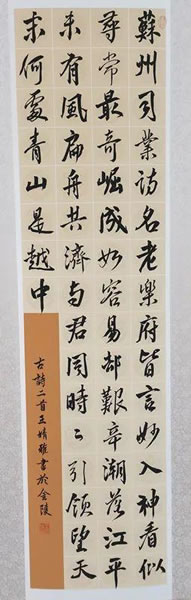 蘇州司業詩名老樂府皆言妙入神看似
尋常最奇崛成如容易却艱辛潮落江平
未有風扁舟共濟与君同時々引領望天
末何處青山是越中
古詩二首王婧雅書於金陵